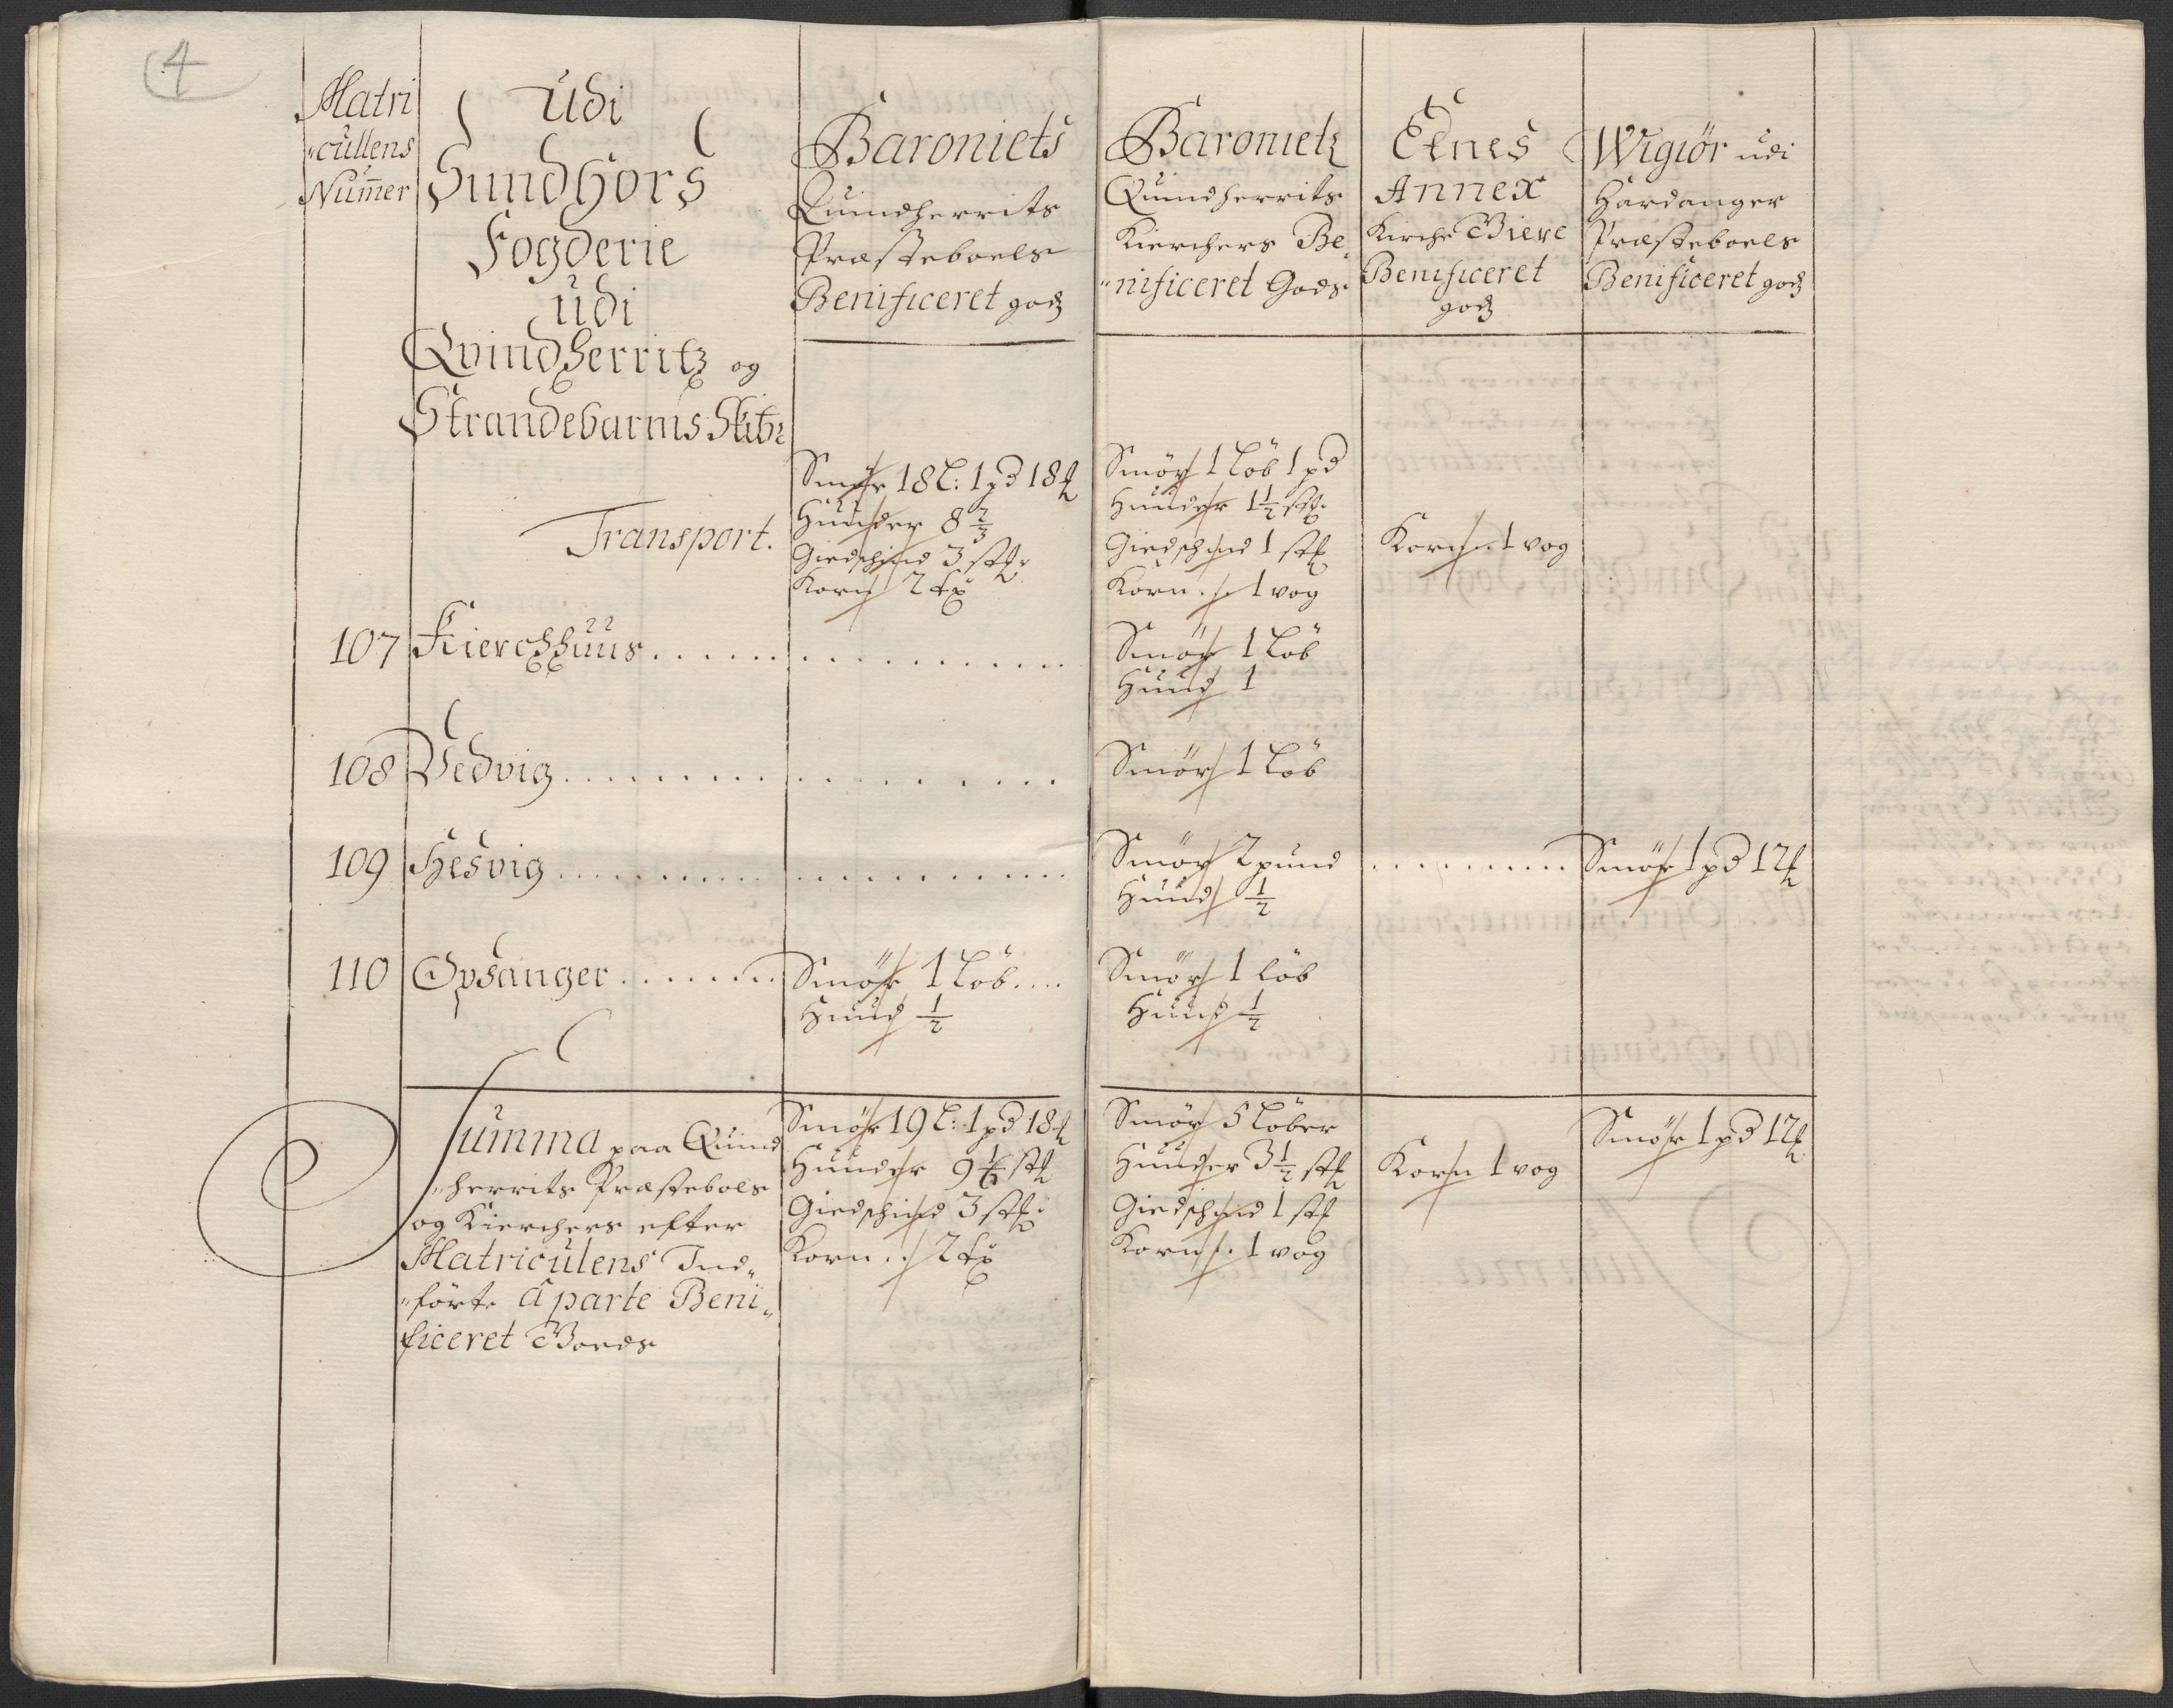 4
Matri
"cullens
Num̅er
Udi
Sundhors
Fogderie
udi
Qvindherritz og
Strandebarms Skibr
Baroniets
Quindherrits
Præsteboels
Benificeret godz
Baronietz
Quindherrits
Kierchers Be
"nificeret Gods
Etnes
Annex
Kirche Viere
Benificeret
godz
Wigiør udi
Hardanger
Præsteboels
Benificeret godz
Transport.
Smör 18 L: 1 pd 18 ℔
Huuder 8 2/3
Giedschind 3 stk:
Korn 2 tx
Smör 1 Löb 1 pd
Huuder 1 1/2 stk.
Giedschind 1 stk
Korn . . 1 vog
Korn . 1 vog
107 Kierchhuus . . . . . . . . . . . . . . . Smör 1 Löb
Huud 1
108 Vedvig . . . . . . . . . . . . . . . Smör 1 Löb
109 Hesvig . . . . . . . . . . . . . . . Smör 2 pund . . . . . . . . . Smör 1 pd 12 ℔
Huud 1/2
110 Opsanger . . . . . . . Smör 1 Löb . . . . Smör 1 löb
Huud 1/2 Huud 1/2
Summa paa Quind
"herrits Præsteboels
og Kierchers efter
Matriculens Ind„
"förte á parte Beni„
ficeret Goeds
Smör 19 L: 1 pd 18 ℔
Huuder 9 1/6 stk
Giedschind 3 stk:
Korn . . 2 tx
Smör 5 Löber
Huuder 3 1/2 stk
Giedschind 1 stk
Korn . . 1 vog
Korn 1 vog
Smör 1 pd 12 ℔